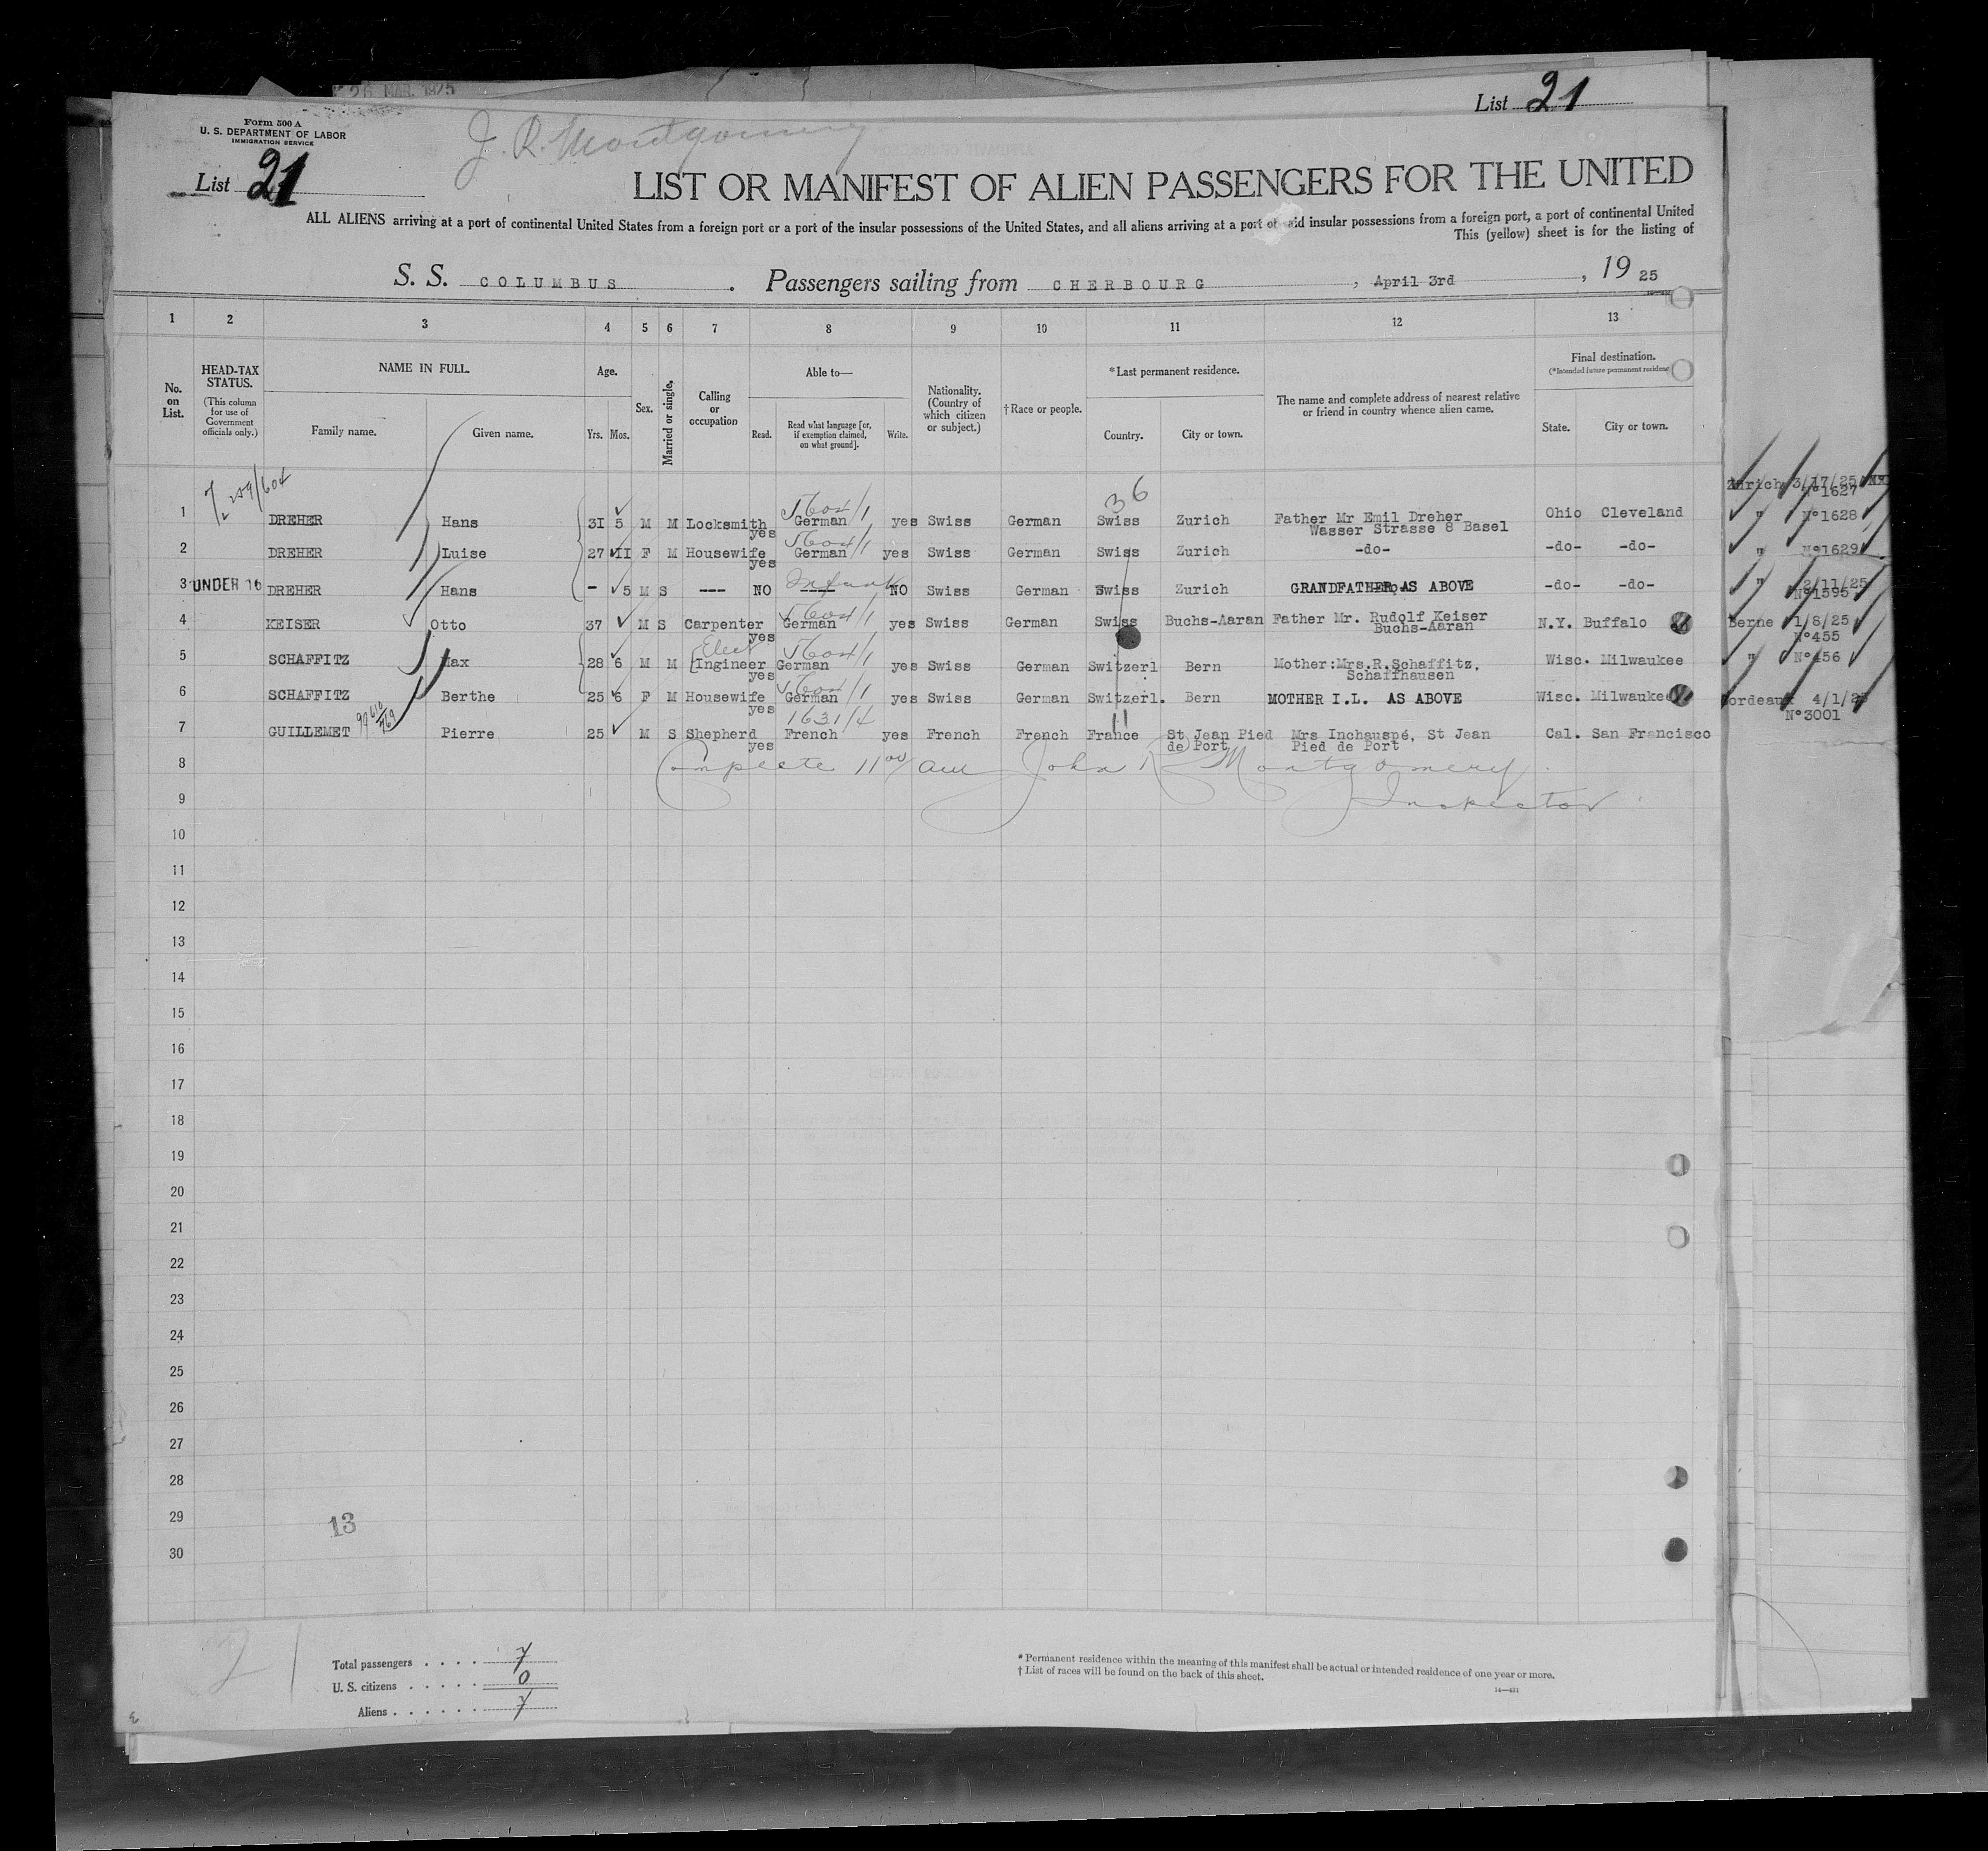 26 MAR. 1925
List 21
Form 500 A
U. S. DEPARTMENT OF LABOR
IMMIGRATION SERVICE
J. R. Montgomery
List 21
LIST OR MANIFEST OF ALIEN PASSENGERS FOR THE UNITED
ALL ALIENS arriving at a port of continental United States from a foreign port or a port of the insular possessions of the United States, and all aliens arriving at a port of said insular possessions from a foreign port, a port of continental United
This (yellow) sheet is for the listing of
S. S. COLUMBUS . Passengers sailing from CHERBOURG , April 3rd , 19 25
1 2 3 4 5 6 7 8 9 10 11 12 13
No. on List.
HEAD-TAX STATUS.
(This column for use of Government officials only.)
NAME IN FULL.
Family name. Given name.
Age.
Yrs. Mos.
Sex.
Married or single.
Calling or occupation
Able to—
Read. Read what language [or, if exemption claimed, on what ground]. Write.
Nationality. (Country of which citizen or subject.)
† Race or people.
* Last permanent residence.
Country. City or town.
The name and complete address of nearest relative or friend in country whence alien came.
Final destination.
(*Intended future permanent residence
State. City or town.
259/604
36
Zurich 3/17/25
N°1627
1 DREHER Hans 31 5 M M Locksmith yes German 5604/1 yes Swiss German Swiss Zurich Father Mr Emil Dreher Wasser Strasse 8 Basel Ohio Cleveland " N°1628
2 DREHER Luise 27 II F M Housewife yes German 5604/1 yes Swiss German Swiss Zurich -do- -do- -do- " N°1629
3 UNDER 16 DREHER Hans - 5 M S --- NO Infant NO Swiss German Swiss Zurich GRANDFATHER AS ABOVE -do- -do- " 2/11/25 N°1595
4 KEISER Otto 37 M S Carpenter yes German 5604/1 yes Swiss German Swiss Buchs-Aaran Father Mr. Rudolf Keiser Buchs-Aaran N.Y. Buffalo Berne 1/8/25 N°455
5 SCHAFFITZ Max 28 6 M M Elect Ingineer yes German 5604/1 yes Swiss German Switzerl Bern Mother:Mrs.R.Schaffitz, Schaffhausen Wisc. Milwaukee " N°456
6 SCHAFFITZ Berthe 25 6 F M Housewife yes German 5604/1 yes Swiss German Switzerl. Bern MOTHER I.L. AS ABOVE Wisc. Milwaukee Bordeaux 4/1/25 N°3001
7 GUILLEMET Pierre 25 M S Shepherd yes French 1631/4 yes French French France St Jean Pied de Port Mrs Inchauspé, St Jean Pied de Port Cal. San Francisco
8 Complete 11 00/ am John R Montgomery
9 Inspector
10
11
12
13
14
15
16
17
18
19
20
21
22
23
24
25
26
27
28
29
30
13
21
Total passengers . . . . 7
U. S. citizens . . . . . 0
Aliens . . . . . . 7
* Permanent residence within the meaning of this manifest shall be actual or intended residence of one year or more.
† List of races will be found on the back of this sheet.
14—431